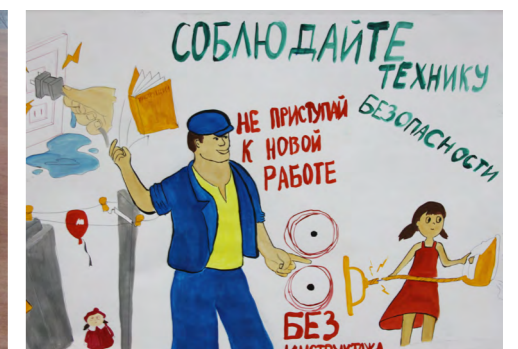 СОБЛЮДАЙТЕ
ТЕХНИКУ
БЕЗОПАСНОСТИ
НЕ ПРИСТУПАЙ
К НОВОЙ
РАБОТЕ
БЕЗ